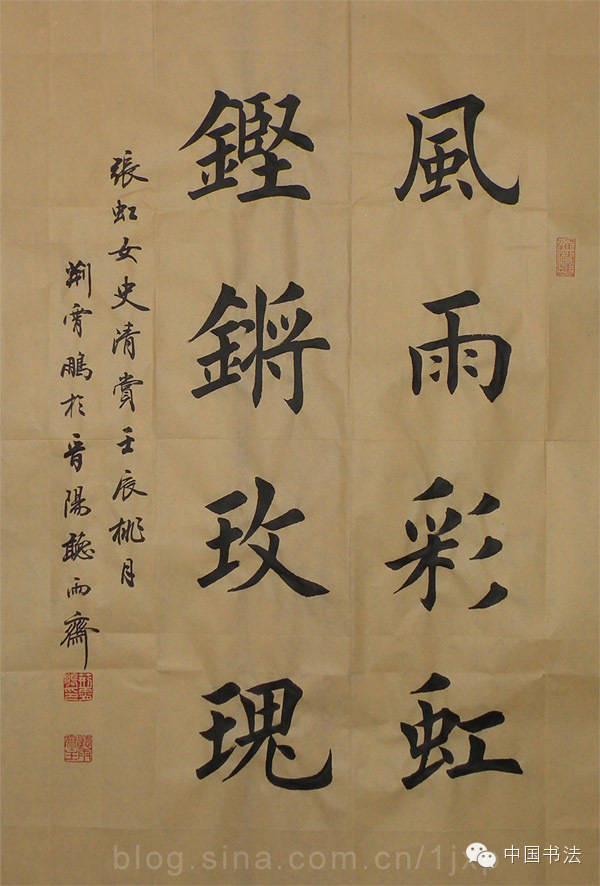 風雨彩虹
鏗鏘玫瑰
張虹女史清賞壬辰桃月
荊霄鵬於晉陽聽雨齋
blog.sina.com.cn/1jxp
中国书法